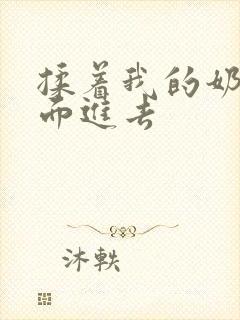 揉着我的奶
而進去
沐軼